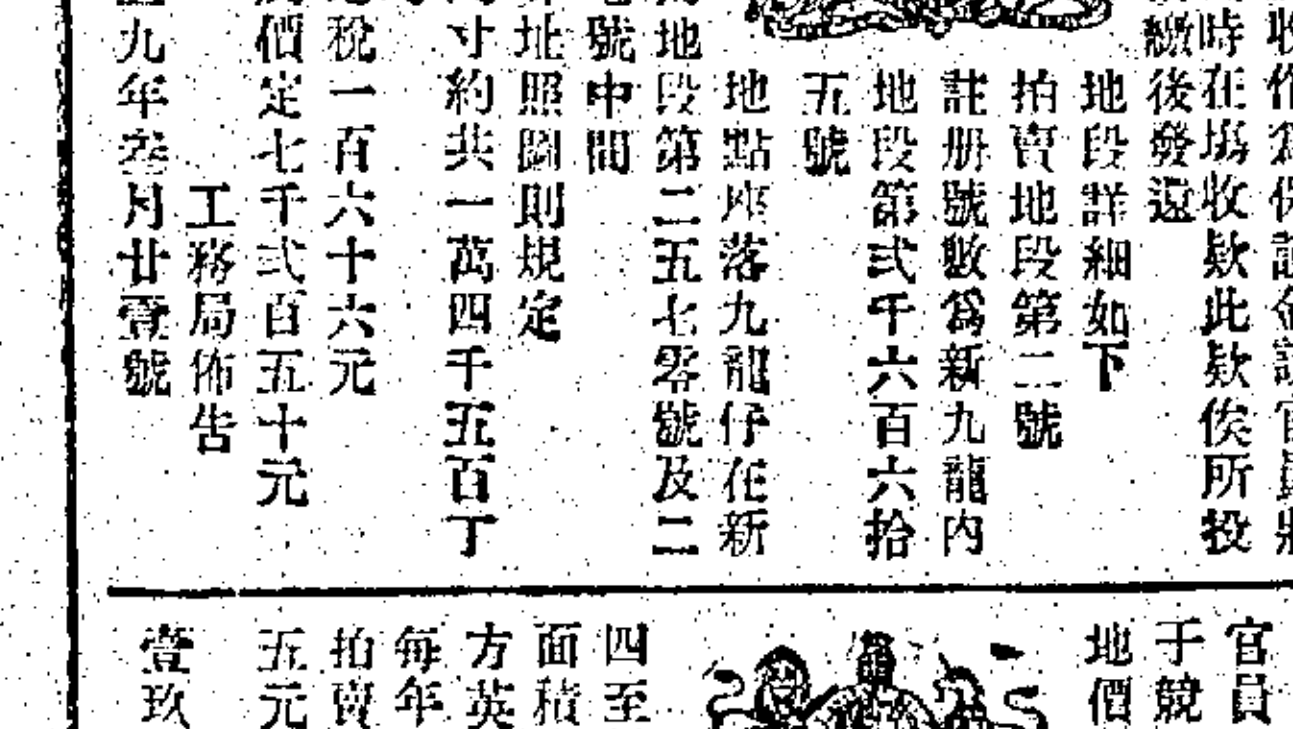 收作爲保証金該官員將
時在塲收欵此欵俟所投
繳後發還
地段詳細如下
拍賣地段第二號
註册號數爲新九龍內
地段第弍千六百六拾
五號
地點座落九龍仔在新
地段第二五七零號及二
號中間
址照圖則規定
寸約共一萬四千五百丁
稅一百六十六元
價定七千弍百五十元
工務局佈告
九年叁月廿壹號
官員
于競
地價
四至
面積
方英
每年
拍賣
五元
壹玖